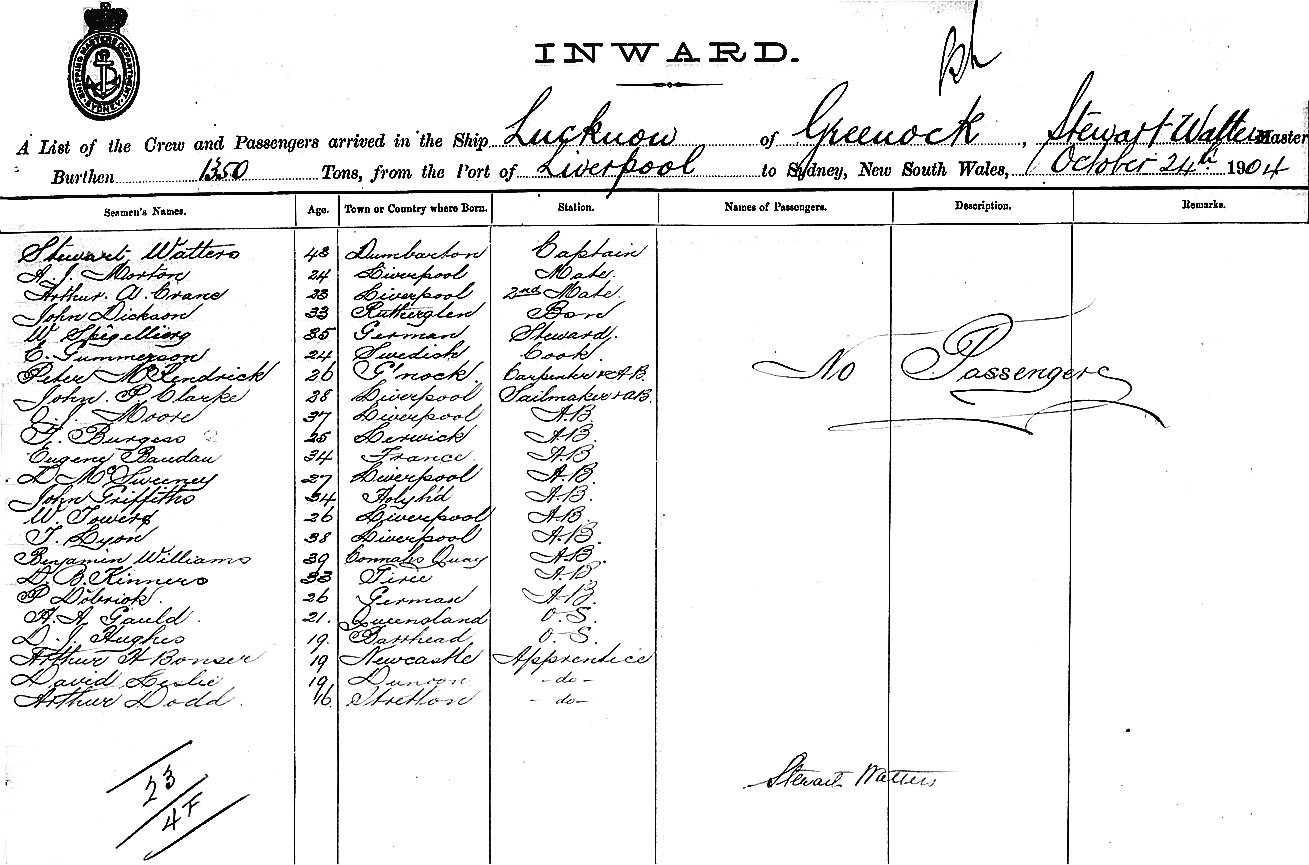 SHIPPING MASTER'S DEPARTMENT SYDNEY
INWARD.
A List of the Crew and Passengers arrived in the Ship Lucknow of Greenock, Stewart Watters Master
Burthen 1350 Tons, from the Port of Liverpool to Sydney, New South Wales, October 24th 1904
Seamen's Names. Age. Town or Country where Born. Station. Names of Passengers. Description. Remarks.
Stewart Watters 48 Dumbarton Captain
A. J. Morton 24 Liverpool Mate.
Arthur. A. Crane 23 Liverpool 2nd Mate.
John Dickson 33 Rutherglen Bsn
W. 35 German Steward.
E. Gummerson 24 Swedish Cook.
Peter McKendrick 26 G'nock. Carpenter & A.B.
No Passengers
John. P. Clarke 28 Liverpool Sailmaker & A.B.
J. Moore 37 Liverpool A.B.
T. Burgess 25 Lerwick A.B.
Eugeny Baudau 34 France. A.B.
D McSweeney 27 Liverpool A.B.
John Griffiths 34 Holyh'd A.B.
W. Towers 26 Liverpool A.B.
T. Lyon 38 Liverpool A.B.
Benjamin Williams 39 Connahs Quay A.B.
D. B. Kinners 33 Tiree A.B.
P Dobrick. 26 German A.B.
A. A. Gauld. 21. Queensland O.S.
D. J. Hughes 19. Barrhead O.S.
Arthur H Bonser 19 Newcastle Apprentice
David Leslie 19 Dunoon -do-
Arthur Dodd. 16 Stretton -do-
23
4F
Stewart Watters